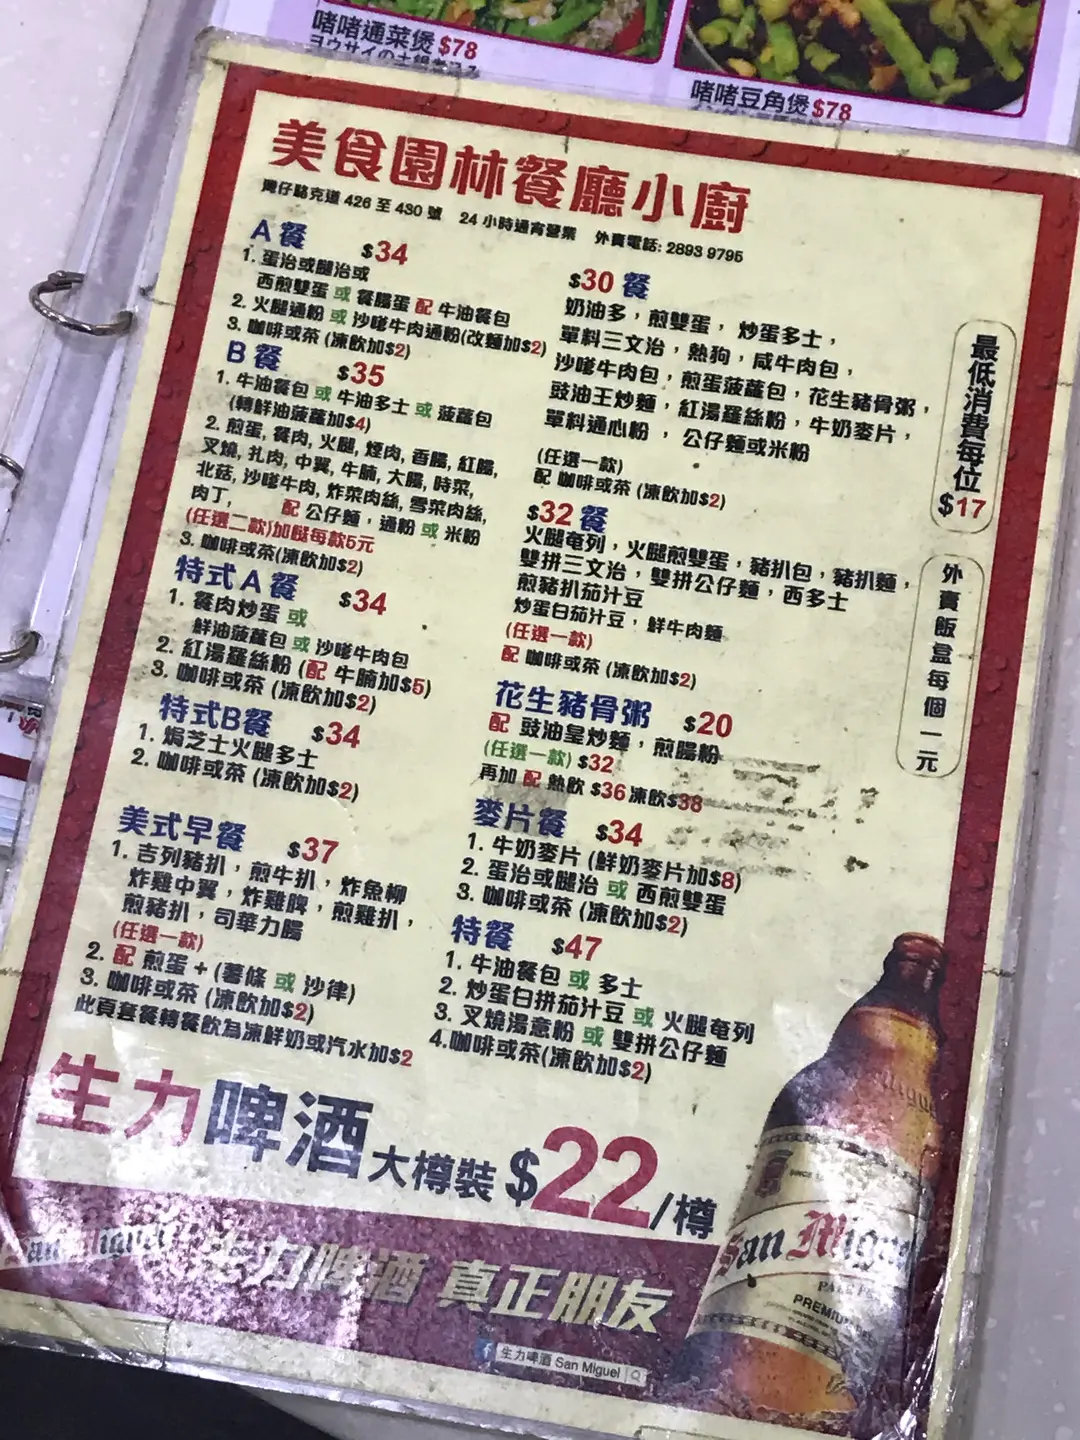 啫啫通菜煲 $78
啫啫豆角煲 $78
美食園林餐廳小廚
灣仔駱克道 426 至 430 號 24 小時通宵營業 外賣電話: 2893 9795
A 餐 $34
1. 蛋治或腿治或
西煎雙蛋 或 餐腸蛋 配 牛油餐包
2. 火腿通粉 或 沙嗲牛肉通粉(改麵加$2)
3. 咖啡或茶 (凍飲加$2)
B 餐 $35
1. 牛油餐包 或 牛油多士 或 菠蘿包
(轉鮮油菠蘿加$4)
2. 煎蛋, 餐肉, 火腿, 煙肉, 香腸, 紅腸,
叉燒, 扎肉, 中翼, 牛腩, 大腸, 時菜,
北菇, 沙嗲牛肉, 炸菜肉絲, 雪菜肉絲,
肉丁, 配 公仔麵，通粉 或 米粉
(任選二款)加餸每款5元
3. 咖啡或茶(凍飲加$2)
特式 A 餐 $34
1. 餐肉炒蛋 或
鮮油菠蘿包 或 沙嗲牛肉包
2. 紅湯羅絲粉 (配 牛腩加$5)
3. 咖啡或茶 (凍飲加$2)
特式B餐 $34
1. 焗芝士火腿多士
2. 咖啡或茶 (凍飲加$2)
美式早餐 $37
1. 吉列豬扒，煎牛扒，炸魚柳
炸雞中翼，炸雞脾，煎雞扒，
煎豬扒，司華力腸
(任選一款)
2. 配 煎蛋 + (薯條 或 沙律)
3. 咖啡或茶 (凍飲加$2)
此頁套餐轉餐飲為凍鮮奶或汽水加$2
$30 餐
奶油多，煎雙蛋，炒蛋多士，
單料三文治，熱狗，咸牛肉包，
沙嗲牛肉包，煎蛋菠蘿包，花生豬骨粥，
豉油王炒麵，紅湯羅絲粉，牛奶麥片，
單料通心粉，公仔麵或米粉
(任選一款)
配 咖啡或茶 (凍飲加$2)
$32 餐
火腿奄列，火腿煎雙蛋，豬扒包，豬扒麵，
雙拼三文治，雙拼公仔麵，西多士
煎豬扒茄汁豆
炒蛋白茄汁豆，鮮牛肉麵
(任選一款)
配 咖啡或茶 (凍飲加$2)
花生豬骨粥 $20
配 豉油皇炒麵，煎腸粉
(任選一款) $32
再加 配 熱飲 $36 凍飲$38
麥片餐 $34
1. 牛奶麥片 (鮮奶麥片加$8)
2. 蛋治或腿治 或 西煎雙蛋
3. 咖啡或茶 (凍飲加$2)
特餐 $47
1. 牛油餐包 或 多士
2. 炒蛋白拼茄汁豆 或 火腿奄列
3. 叉燒湯意粉 或 雙拼公仔麵
4.咖啡或茶(凍飲加$2)
最低消費每位$17
外賣飯盒每個一元
生力啤酒大樽裝 $22/樽
San Miguel 生力啤酒 真正朋友
San Miguel
PREMIUM
生力啤酒 San Miguel